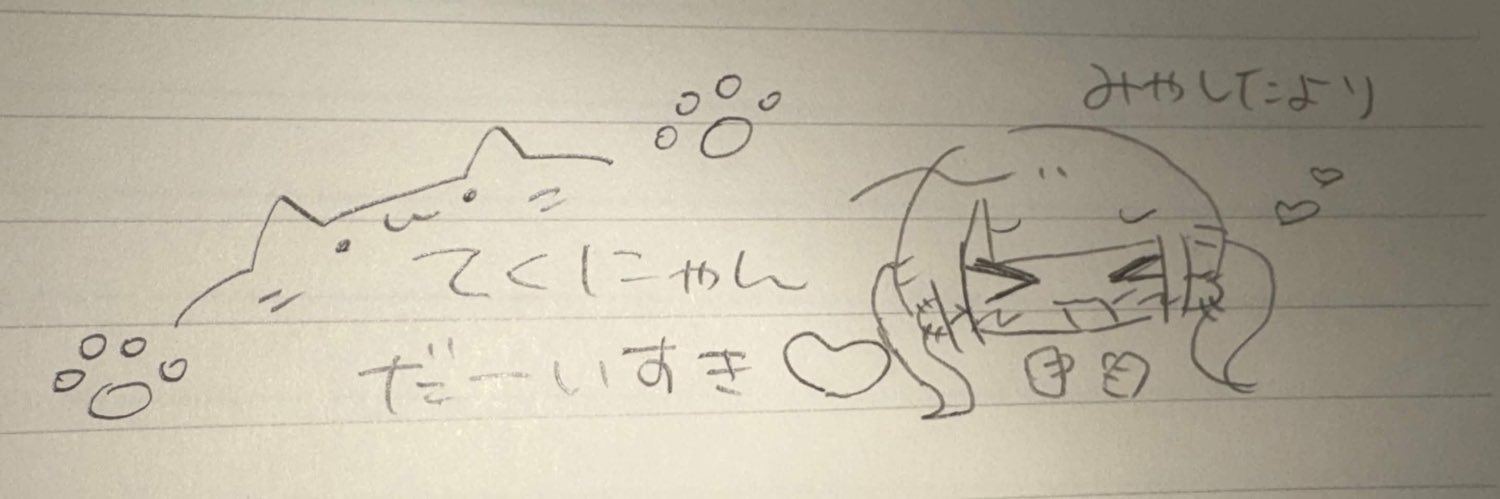 みやしたより
てくにゃん
だーいすき